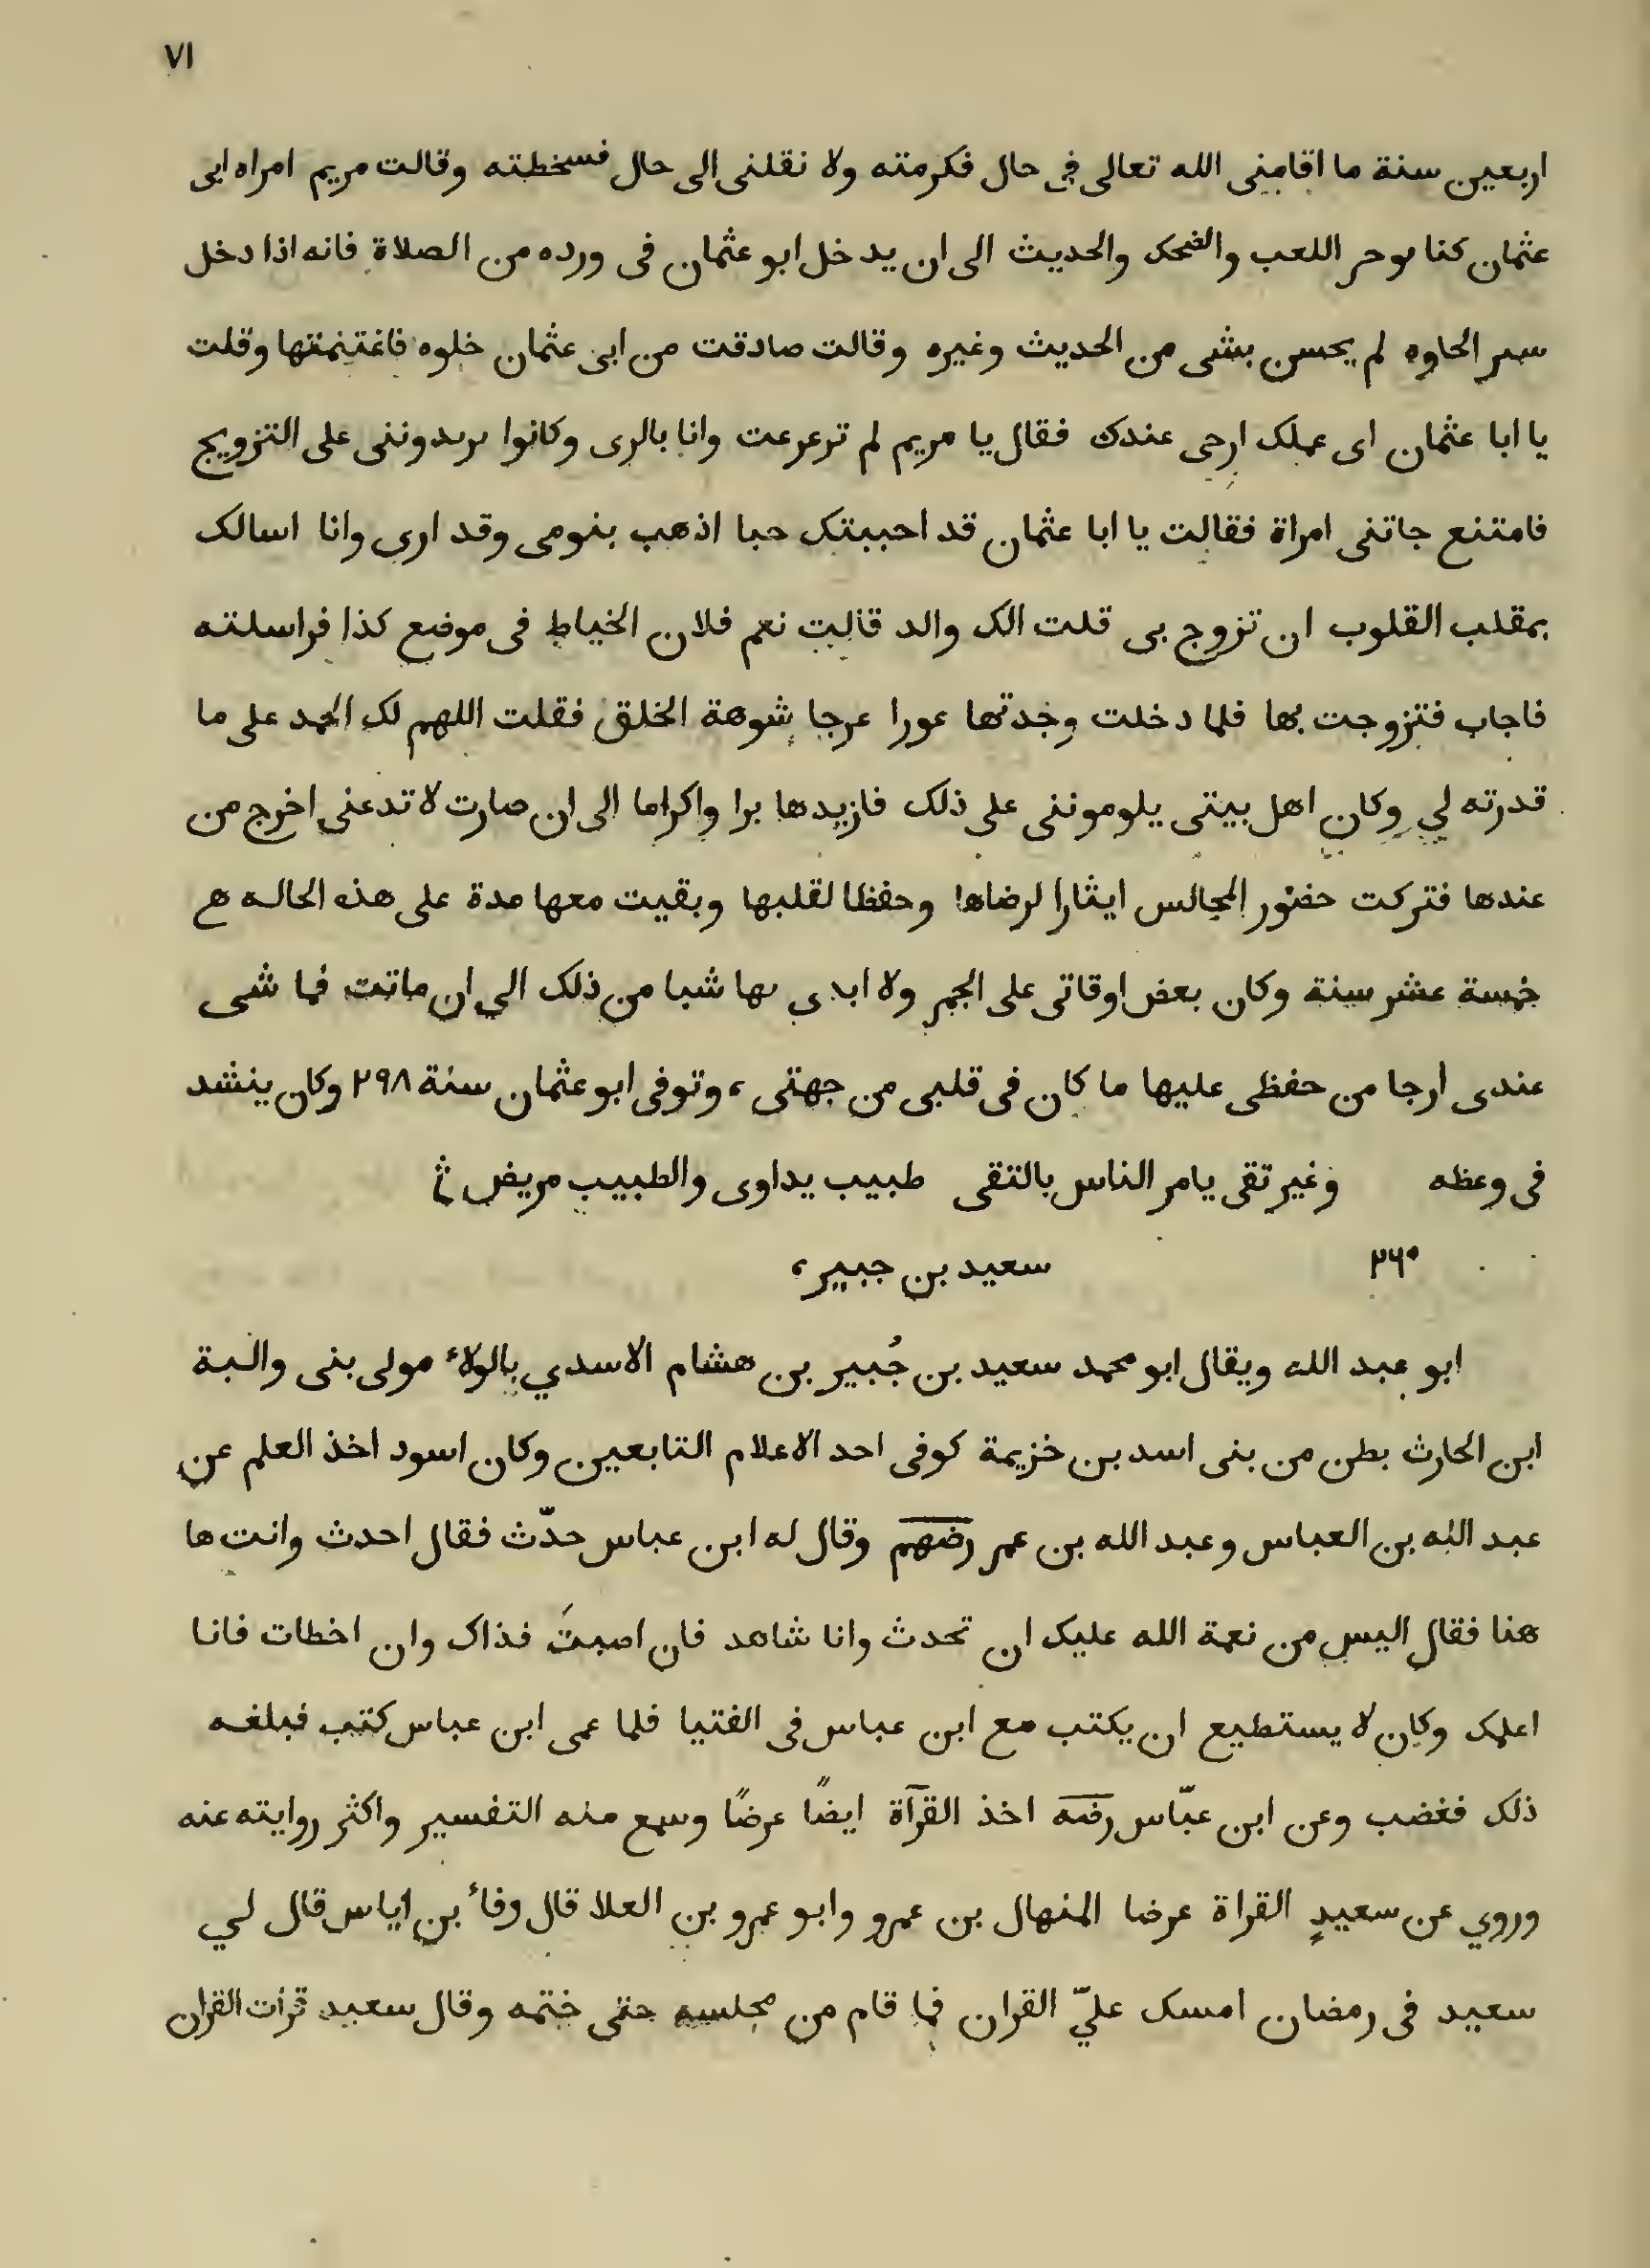 ٧١
اربعين سنة ما اقامنى الله تعالى فى حال فكرمته ولا نقلنى الى حال فسخطته وقالت مريم امراه ابى
عثمان كنا نوحر اللعب والضحك والحديث الى ان يدخل ابو عثمان فى ورده من الصلاة فانه اذا دخل
سير الخلوه لم يحسن بشى من الحديث وغيره وقالت صادقت من ابى عثمان خلوه فاغتنمتها وقلت
يا ابا عثمان اى عملك ارجى عندك فقال يا مريم لم ترعرعت وانا بالرى وكانوا يريدوننى على التزويج
فامتنع جاتنى امراة فقالت يا ابا عثمان قد احببتك حبا اذهب بنومى وقد ارى وانا اسالك
بمقلب القلوب ان تزوج بى قلت الك والد قالت نعم فلان الخياط فى موضع كذا فراسلته
فاجاب فتزوجت بها فلما دخلت وجدتها عورا عرجا شوهة الخلق فقلت اللهم لك الحمد على ما
قدرته لي وكان اهل بيتى يلوموننى على ذلك فازيدها برا واكراما الى ان صارت لا تدعنى اخرج من
عندها فتركت حضور المجالس ايثارا لرضاها وحفظا لقلبها وبقيت معها مدة على هذه الحاله
خمسة عشر سنة وكان بعض اوقاتى على الجمر ولا ابدى بها شيا من ذلك الي ان ماتت فما شى
عندى ارجا من حفظى عليها ما كان فى قلبى من جهتى، وتوفى ابو عثمان سنة ٢٩٨ وكان ينشد
فى وعظه وغير تقى يامر الناس بالتقى طبيب يداوى والطبيب مريض
٢٦٠ سعيد بن جبير،
ابو عبد الله ويقال ابو محمد سعيد بن جُبير بن هشام الاسدي بالولاء مولى بنى والبة
ابن الحارث بطن من بنى اسد بن خزيمة كوفى احد الاعلام التابعين وكان اسود اخذ العلم عن
عبد الله بن العباس وعبد الله بن عمر رضهم وقال له ابن عباس حدّث فقال احدث وانت ها
هنا فقال اليس من نعمة الله عليك ان تحدث وانا شاهد فان اصبتَ فذاك وان اخطات فانا
اعلمك وكان لا يستطيع ان يكتب مع ابن عباس فى الفتيا فلما عمى ابن عباس كتب فبلغه
ذلك فغضب وعن ابن عبّاس رضه اخذ القرآة ايضًا عرضًا وسمع منه التفسير واكثر روايته عنه
وروي عن سعيدٍ القراة عرضا المنهال بن عمرو وابو عمرو بن العلا قال وفاء بن اياس قال لي
سعيد فى رمضان امسك عليّ القران فما قام من مجلسه حتى ختمه وقال سعيد قرأت القران